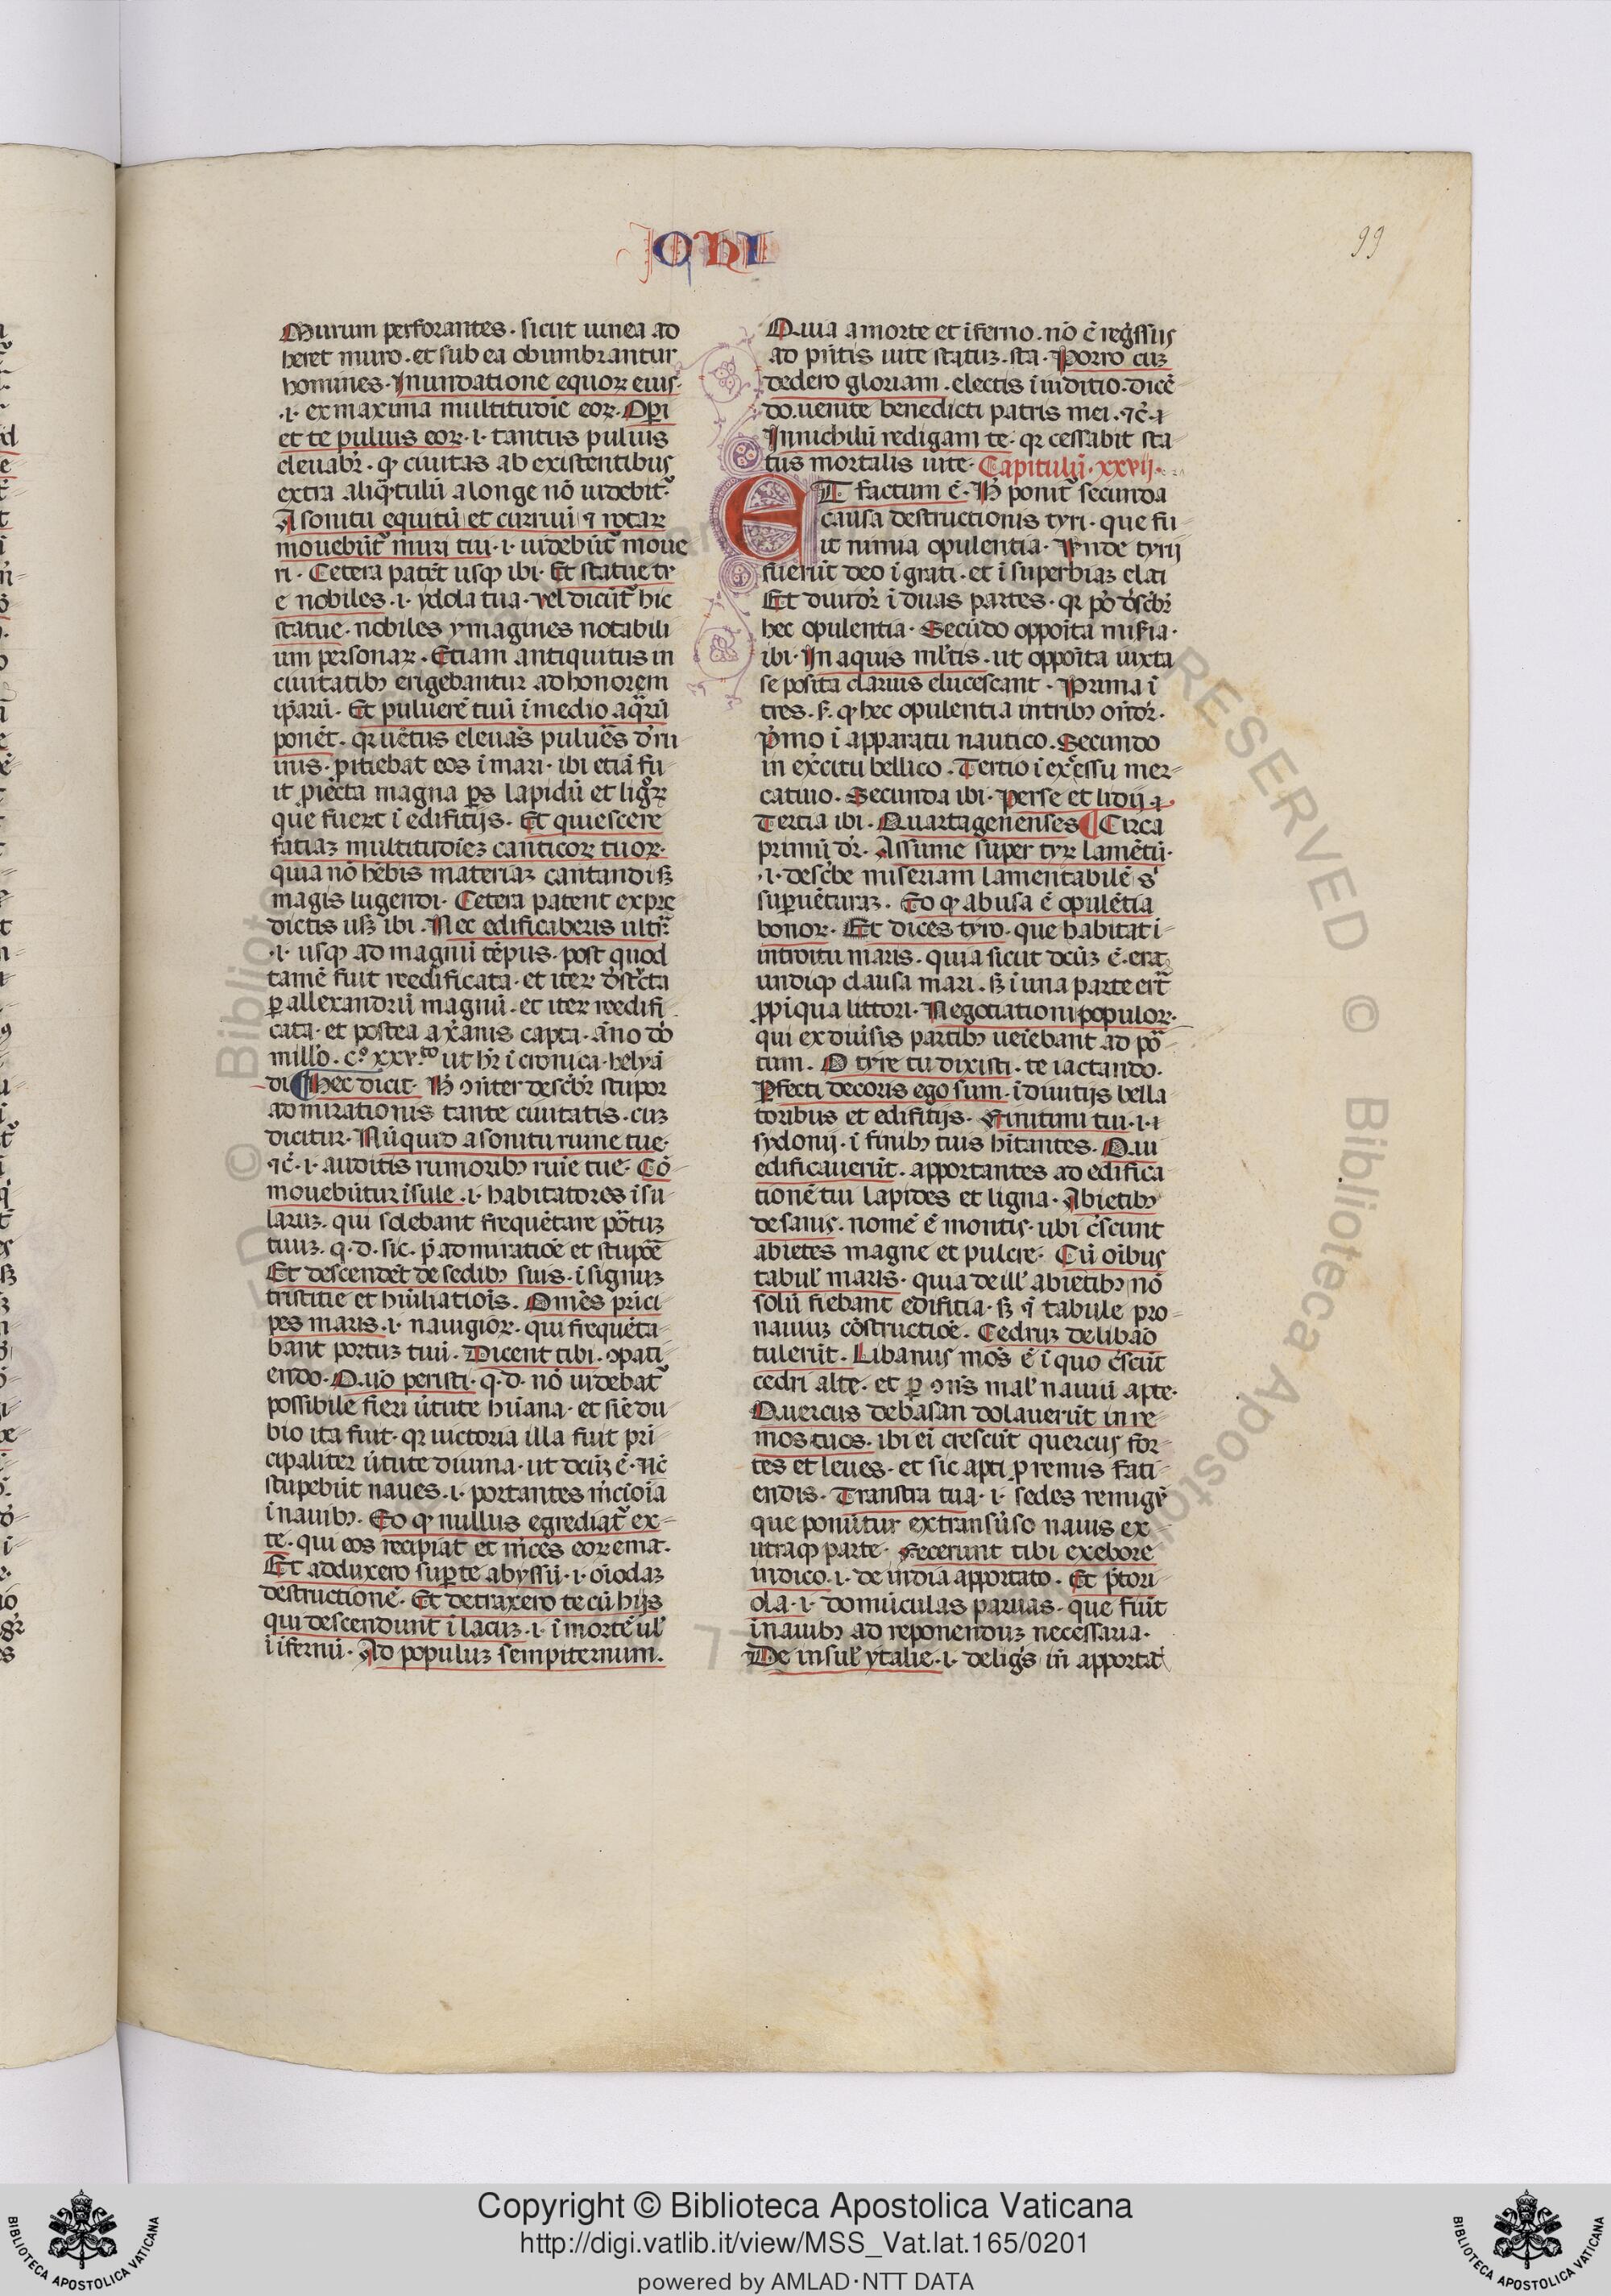 QHI
99
Murum perforantes · sicut uinea ad
heret muro · et sub ea obumbrantur
homines · Inundatione equoꝝ eius ·
·i· ex maxima multitudīe eoꝝ · Opi
et te puluis eoꝝ · i · tantus puluis
eleuabr̄ · ꝙ ciuitas ab existentibus
extra aliqͣtulū a longe nō uidebit᷑
A sonitu equitū et curruū ⁊ rotaꝝ
mouebūt᷑ muri tui · i · uidebūt᷑ moue
ri · Cetera patēt usqꝫ ibi · Et statue tr̄
e nobiles · i · ydola tua · vel dicūt᷑ hic
statue · nobiles ymagines notabili
um personaꝝ · Etiam antiquitus in
ciuitatibꝫ erigebantur ad honorem
ip̄arū · Et puluerē tuū ī medio aqͣꝝ
ponēt · qꝛ uētus eleuās puluēs dīru
tiuis · piciebat eos ī mari · ibi etiā fu
it piecta magna ꝑs lapidū et lignoꝝ
que fuert ī edificijs · Et quiescere
faciaꝫ multitudīeꝫ canticoꝝ tuoꝝ ·
quia nō hēbis materiaꝫ cantandi sꝫ
magis lugendi · Cetera patent ex pre
dictis usꝫ ibi · Nec edificaberis ultͣ
·i· usqꝫ ad magnū tēpus · post quod
tamē fuit reedificata · et iteꝝ dstͨcta
ꝑ allexandrū magnū · et iteꝝ reedifi
cata · et postea a xānis capta · āno dō
mill̄o · c° xxv.to ut hr̄ ī cronica · helyā
di ¶ Hec dicit · H̄ ɔn̄ter descͥbr̄ stupor
admirationis tante ciuitatis · cuꝫ
dicitur · Nūquid a sonitu ruine tue ·
⁊c̄ · i · auditis rumoribꝫ ruīe tue · Cō
mouebūtur īsule · i · habitatores īsu
laruꝫ · qui solebant frequētare pōtuꝫ
tuuꝫ · q · d · sic · p̄ admiratiōe et stupōe
Et descendēt de sedibꝫ suis · ī signuꝫ
tristitie et hūiliatiōis · Omēs prīci
pes maris · i · nauigioꝝ · qui frequēta
bant portuꝫ tuū · Dicent tibi · ɔpati
endo · Quō peristi · q · d · nō uidebat᷑
possibile fieri ūtute hūana · et sīe du
bio ita fuit · qꝛ uictoria illa fuit pri
cipaliter ūtute diuina · ut dcūꝫ ē · ⁊c̄
stupebūt naues · i · portantes m̄cioīa
ī nauibꝫ · Eo ꝙ nullus egrediat᷑ ex
te · qui eos recipiat et m̄ces eoꝝ emat ·
Et adduxero suꝑ te abyssū · i · oīodaꝫ
destructionē · Et detraxero te cū hijs
qui descendunt ī lacuꝫ · i · ī mortē ul̄
ī īfernū · Ad populuꝫ sempiternum ·
Quia a morte et īferno · nō ē regr̄ssus
ad pn̄tis uite statuꝫ · sta · Porro cuꝫ
dedero gloriam · electis ī iuditio · dicē
do · uenite benedicti patris mei · ⁊c̄ · ⁊
In nichilū redigam te · qꝛ cessabit sta
tus mortalis uite · Capitulū · xxvij ·
ET factum ē · H̄ ponit᷑ secunda
causa destructionis tyri · que fu
it nimia opulentia · Vnde tyrij
fuerūt deo ī grati · et ī superbiaꝫ elati
Et diuidr̄ ī duas partes · qꝛ pͦ dscͥbr̄
hec opulentia · Secūdo oppoīta miẜia ·
ibi · In aquis ml̄tis · ut oppoīta iuxta
se posita clarius elucescant · Prima ī
tres · ẜ · ꝙ hec opulentia in tribꝫ oñdr̄ ·
pͥmo ī apparatu nautico · Secundo
in ex̄citu bellico · Tertio ī ex̄cessu mer
catiuo · Secunda ibi · Perse et lidij ⁊
Tertia ibi · Quartagenenses ¶ Circa
primū dr̄ · Assume super tyꝝ lamētū ·
·i· descͥbe miseriam lamentabilē sͥ
suꝑuēturaꝫ · Eo ꝙ abusa ē opulētia
bonoꝝ · Et dices tyro · que habitat ī
introitu maris · quia sicut dcūꝫ ē · erat
undiqꝫ clausa mari · sꝫ ī una parte erͣt
ꝓpiqua littori · Negotiationi populoꝝ ·
qui ex diuīsis partibꝫ ueīebant ad poͬ
tum · O tyre tu dixisti · te iactando ·
Ꝑfecti decoris ego sum · ī diuitijs bella
toribus et edifitijs · Finitimi tui · i · ⁊
sydonij · ī finibꝫ tuis hītantes · Qui
edificauerūt · apportantes ad edifica
tionē tui lapides et ligna · Abietibꝫ
de sanir · nomē ē montis · ubi cͥscunt
abietes magne et pulcre · Cū oībus
tabul̄ maris · quia de ill̄ abietibꝫ nō
solū fiebant edifitia · sꝫ ⁊ tabule pro
nauiuꝫ cōstructiōe · Cedruꝫ de libāo
tulerūt · Libanus mōs ē ī quo cͥscūt
cedri alte · et ꝑ ɔn̄s mal̄ nauiū apte ·
Quercus de basan dolauerūt in re
mos tuos · ibi eī crescūt quercus for
tes et leues · et sic apti ꝓ remis fati
endis · Transtra tua · i · sedes remigū
que ponūtur ex transūso nauis ex
utraqꝫ parte · Fecerunt tibi ex ebore
indico · i · de india apportato · Et p̄tori
ola · i · domūculas paruas · que fiūt
ī nauibꝫ ad reponenduꝫ necessaria ·
De insul̄ ytalie · i · de lig̅s in̄ apporta
Copyright © Biblioteca Apostolica Vaticana
http://digi.vatlib.it/view/MSS_Vat.lat.165/0201
powered by AMLAD·NTT DATA
BIBLIOTECA APOSTOLICA VATICANA
BIBLIOTECA APOSTOLICA VATICANA